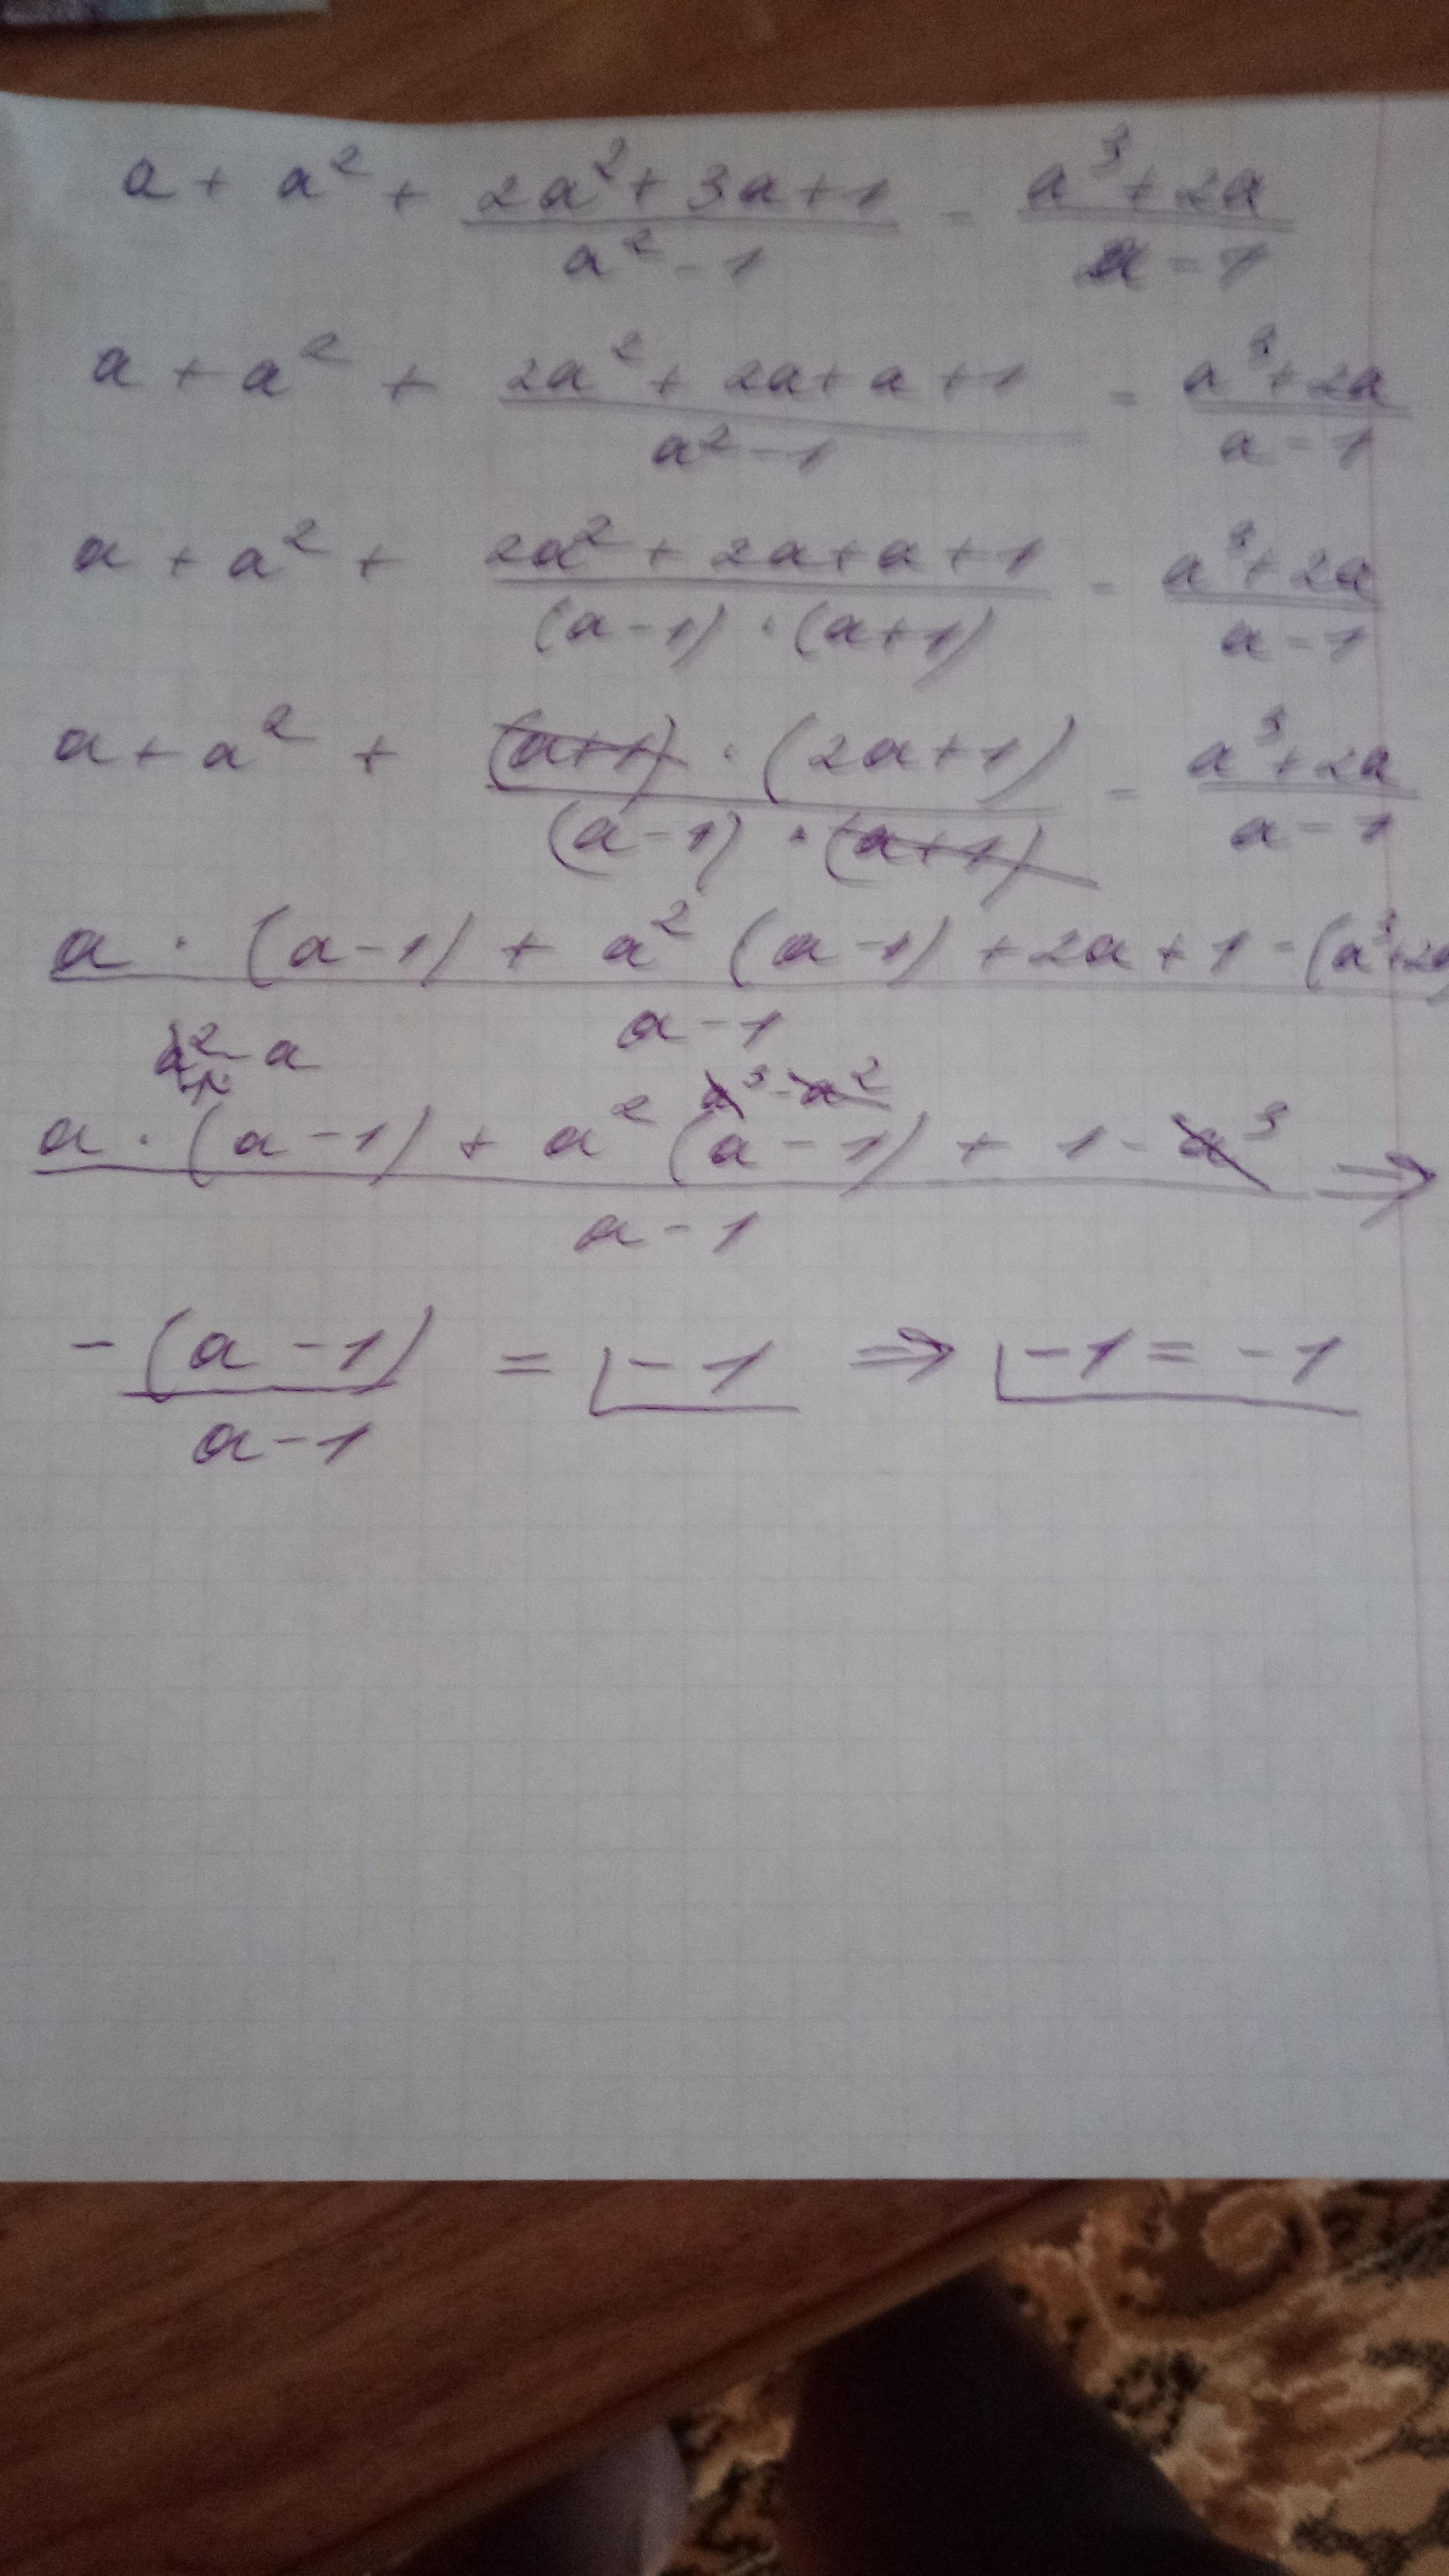 a + a² + (2a² + 3a + 1)/(a² - 1) - (a³ + 2a)/(a - 1)
a + a² + (2a² + 2a + a + 1)/(a² - 1) - (a³ + 2a)/(a - 1)
a + a² + (2a² + 2a + a + 1)/((a - 1) · (a + 1)) - (a³ + 2a)/(a - 1)
a + a² + ((a + 1) · (2a + 1))/((a - 1) · (a + 1)) - (a³ + 2a)/(a - 1)
(a · (a - 1) + a² (a - 1) + 2a + 1 - (a³ + 2a))/(a - 1)
a² - a a³ - a²
(a · (a - 1) + a² (a - 1) + 1 - a³)/(a - 1) ⇒
-(a - 1)/(a - 1) = -1 ⇒ -1 = -1